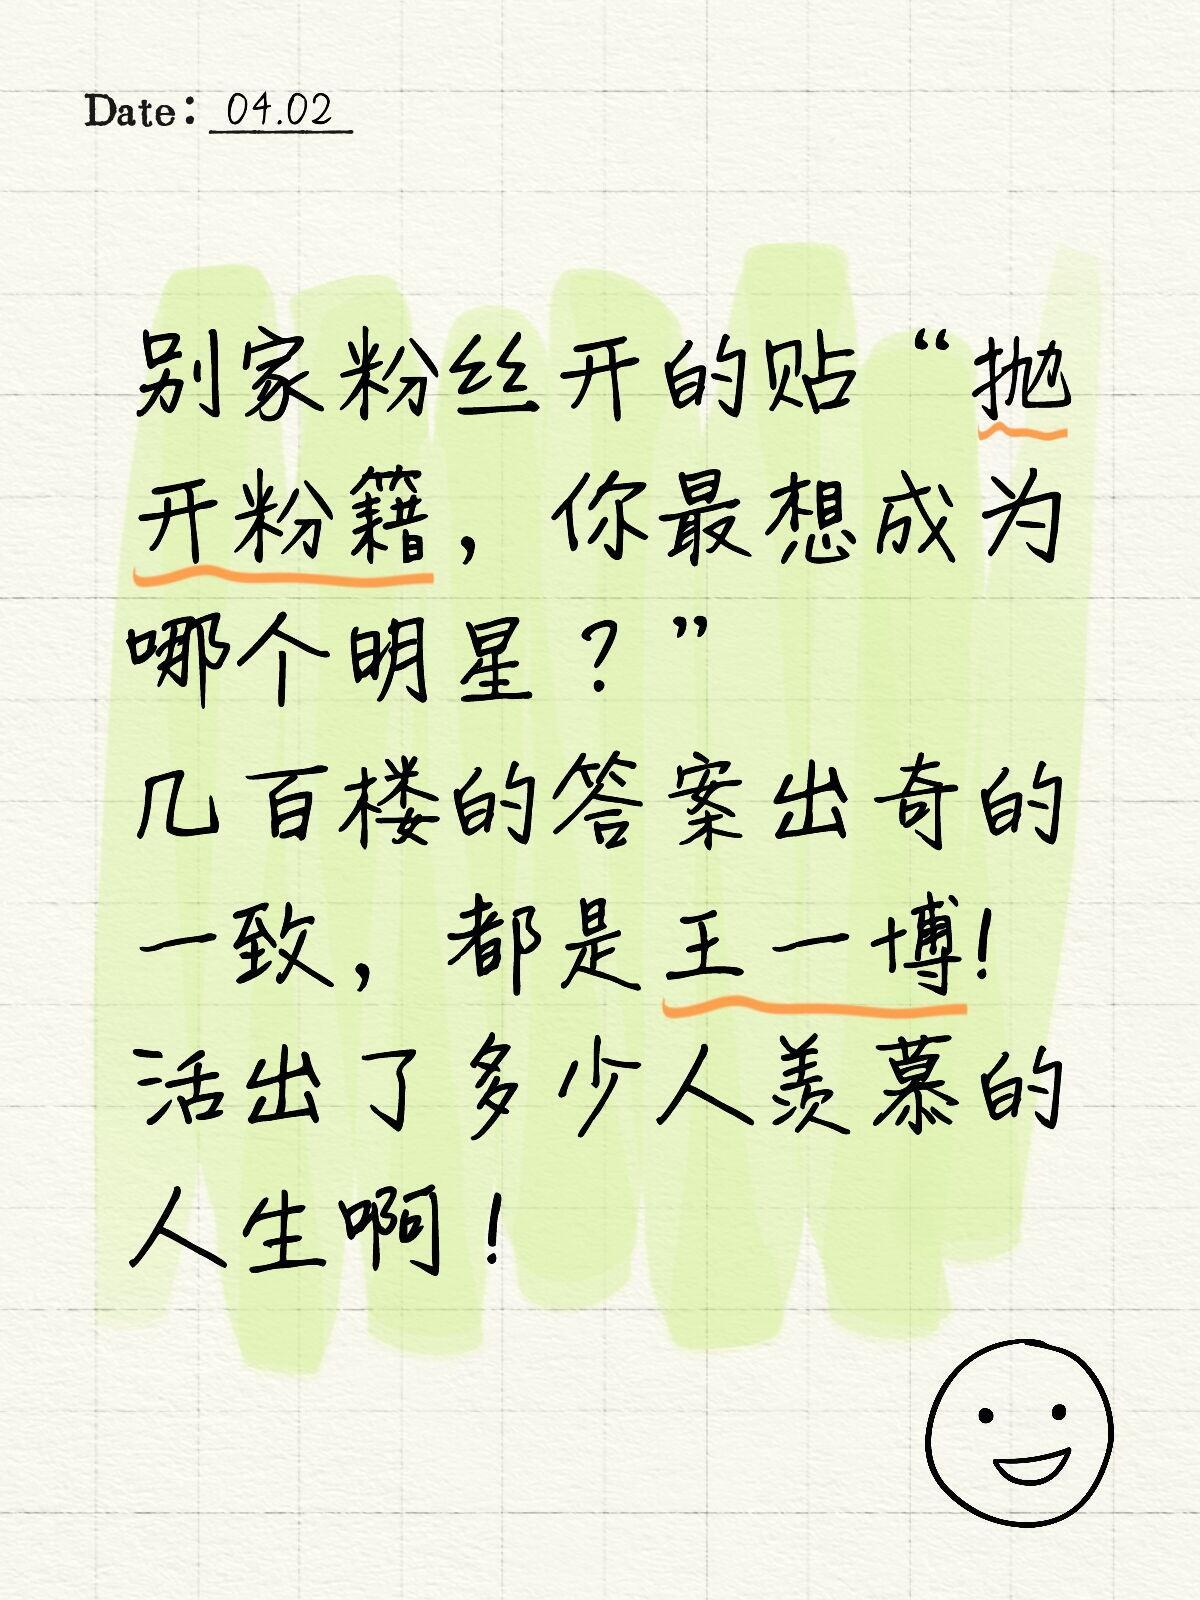 Date: 04.02
别家粉丝开的贴“抛
开粉籍，你最想成为
哪个明星？”
几百楼的答案出奇的
一致，都是王一博！
活出了多少人羡慕的
人生啊！